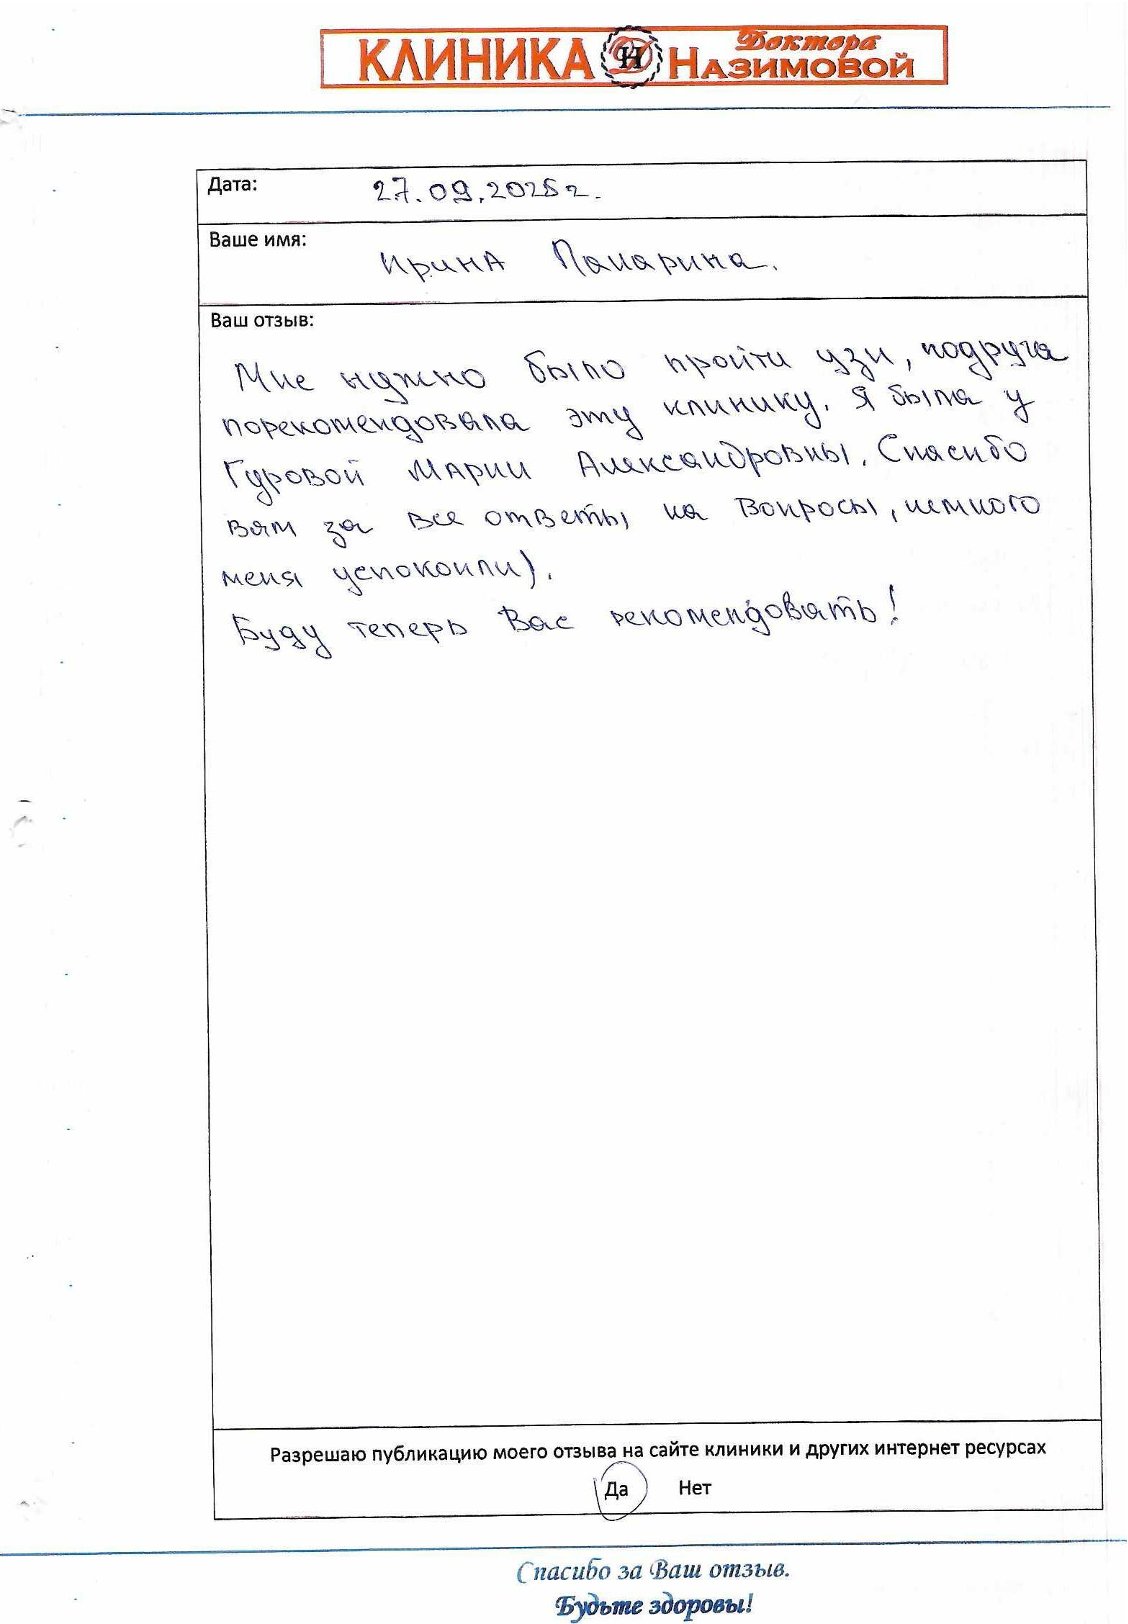 КЛИНИКА ДН Доктора Назимовой
Дата: 27.09.2025г.
Ваше имя: Ирина Папарина.
Ваш отзыв:
Мне нужно было пройти узи, подруга
порекомендовала эту клинику. Я была у
Гуровой Марии Александровны. Спасибо
вам за все ответы на вопросы, немного
меня успокоили).
Буду теперь Вас рекомендовать!
Разрешаю публикацию моего отзыва на сайте клиники и других интернет ресурсах
Да Нет
Спасибо за Ваш отзыв.
Будьте здоровы!